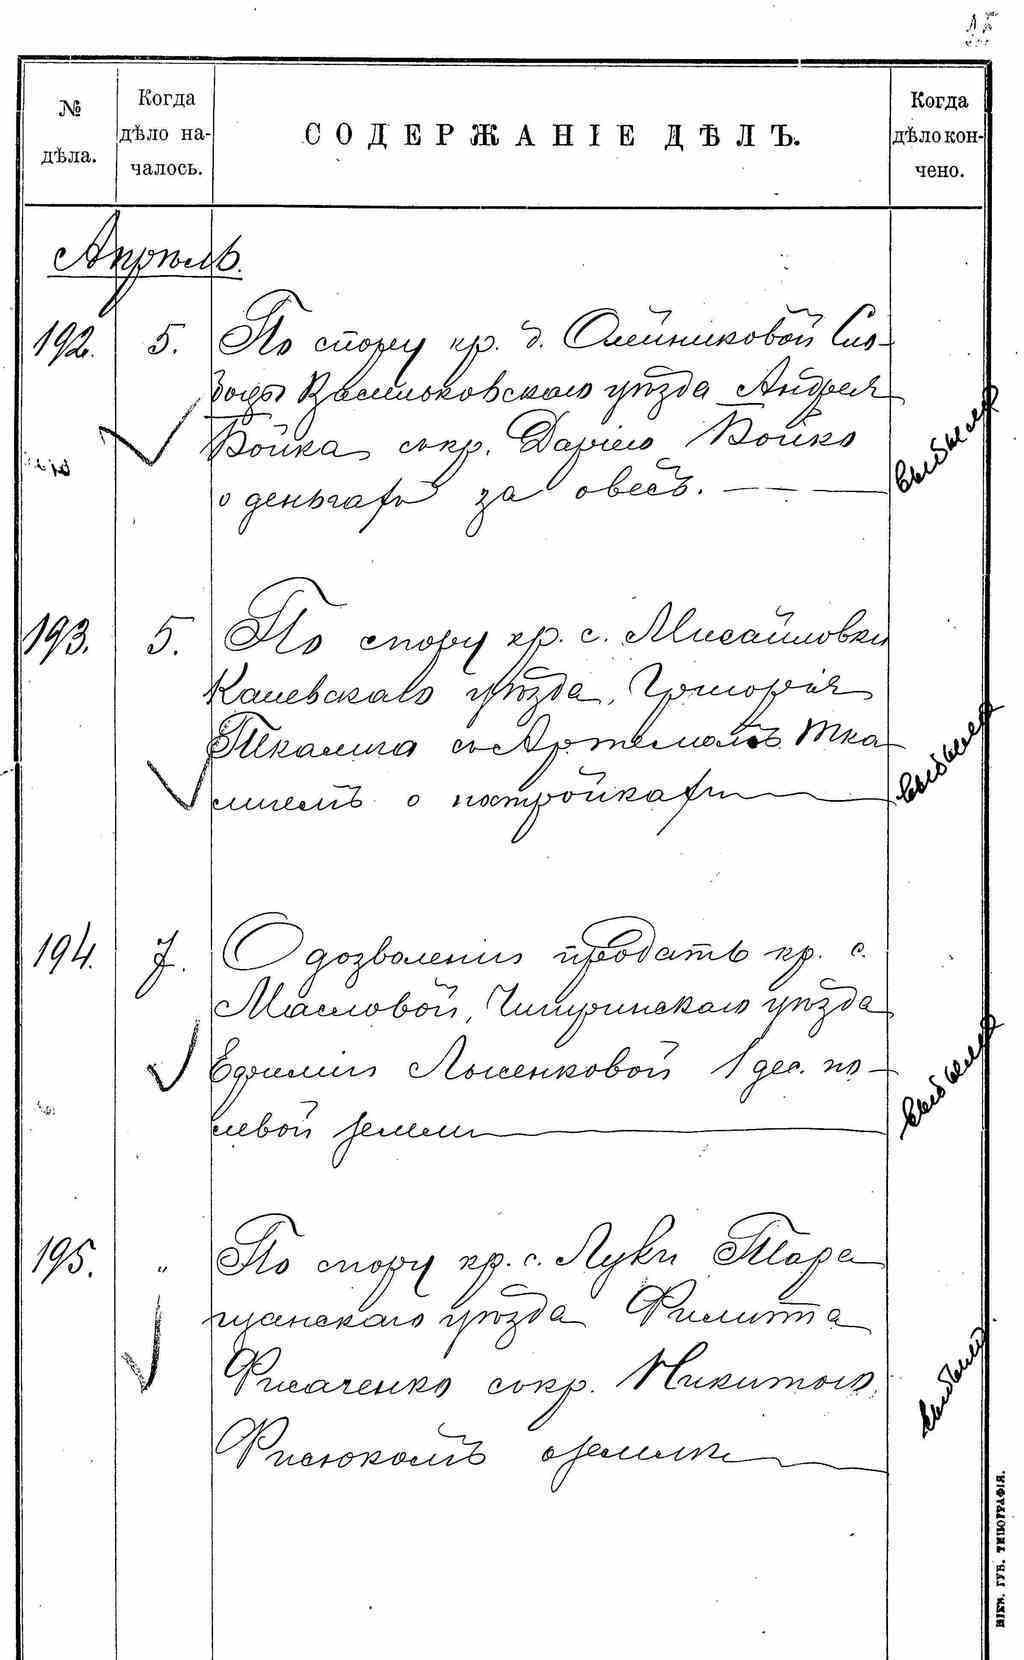 № дѣла.
Когда дѣло на-
чалось.
СОДЕРЖАНІЕ ДѢЛЪ.
Когда дѣло кон-
чено.
Апрѣль.
192. 5. По спору кр. д. Олейниковой Сло-
боды Васильковскаго уѣзда Андрея
Бойка съ кр. Даріею Бойко
о деньгахъ за овесъ.
выбыла
193. 5. По спору кр. с. Михайловки
Каневскаго уѣзда, Григорія
Ткалича съ Артемомъ Тка-
личемъ о постройкахъ
выбыла
194. 7. О дозволеніи продать кр. с.
Масловой, Чигиринскаго уѣзда
Ефиміи Лысенковой 1 дес. по-
левой земли
выбыла
195. „ По спору кр. с. Луки Тара
щанскаго уѣзда Филиппа
Фисаченко съ кр. Никитою
Фисюкомъ о землѣ
выбыла
КІЕВ. ГУБ. ТИПОГРАФІЯ.